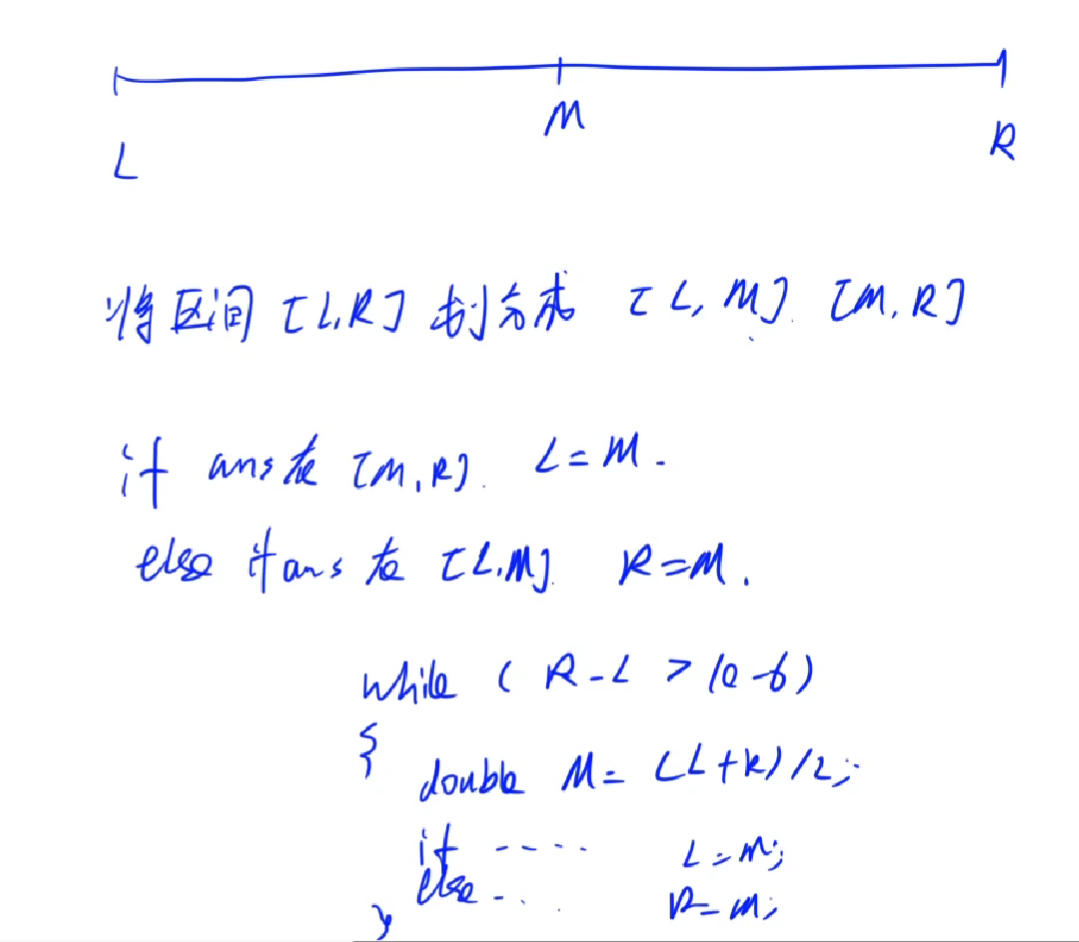 M
L R
将区间 [L,R] 划分成 [L, M]. [M, R]
if ans在 [M, R]. L=M.
else if ans 在 [L.M]. R=M.
while ( R-L > 1e-6)
{
double M= (L+R)/2;
if ---- L=M;
else -.. R=M;
}